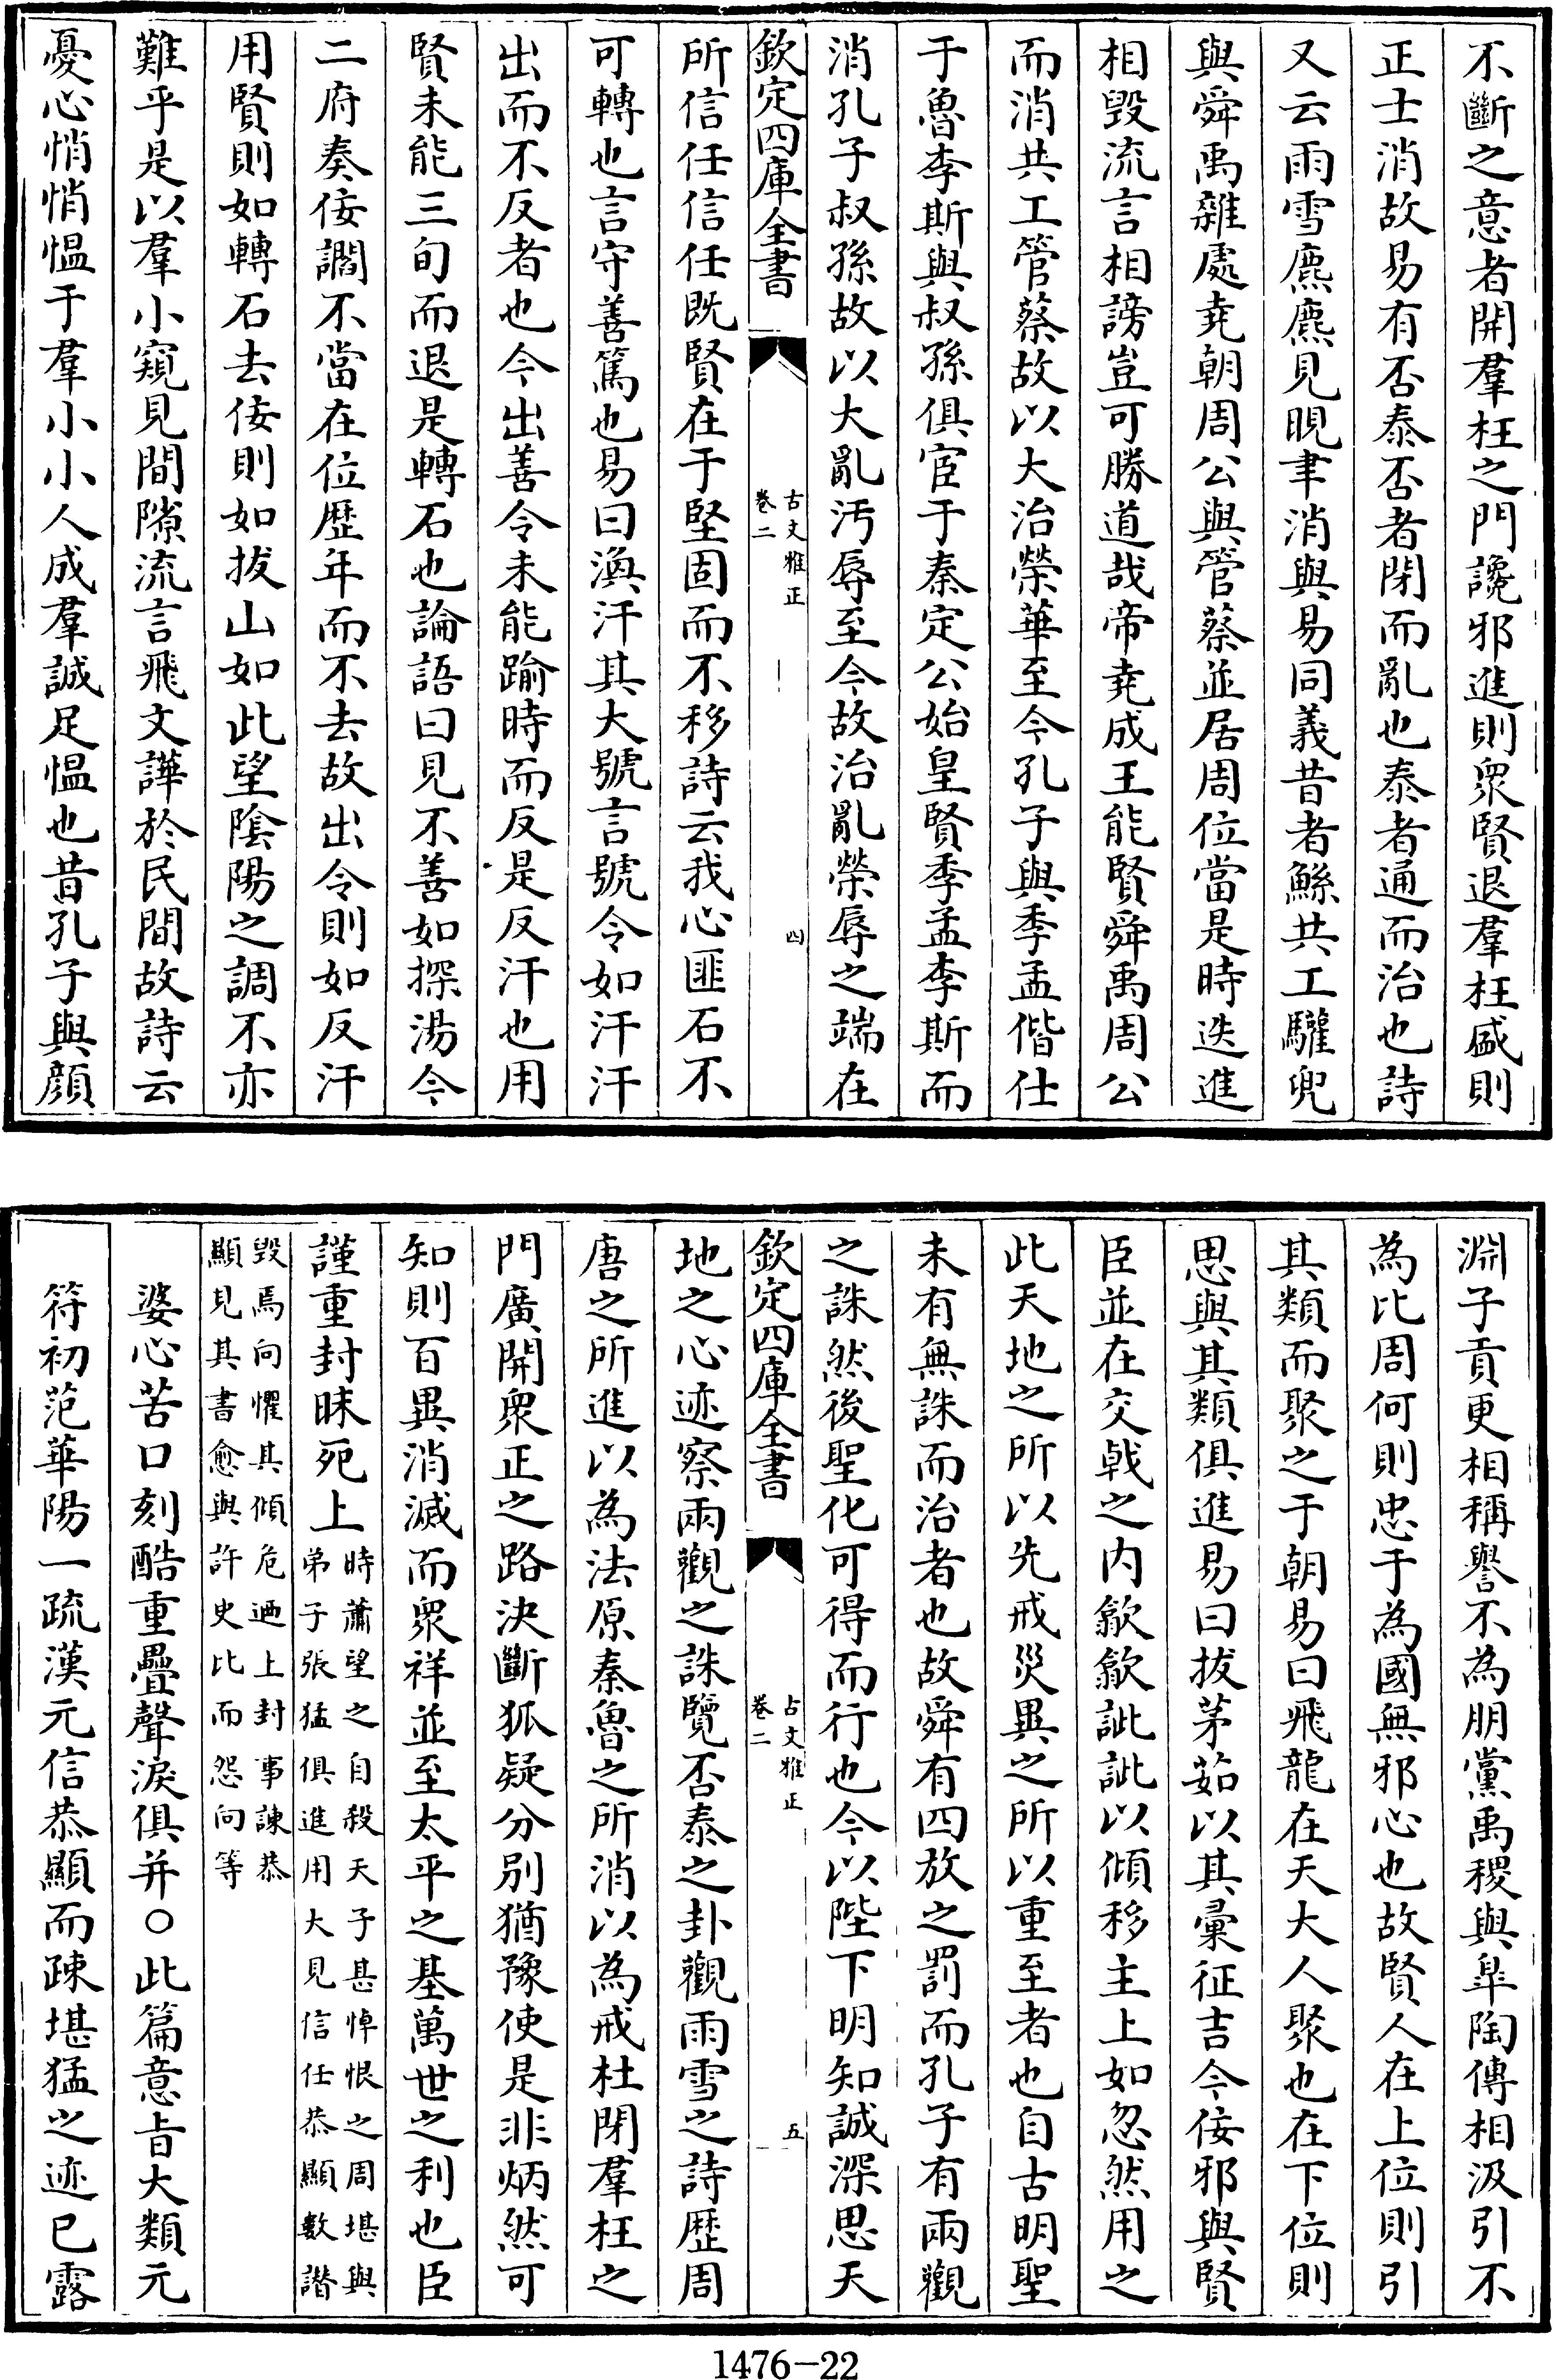 不斷之意者開羣枉之門讒邪進則衆賢退羣枉盛則
正士消故易有否泰否者閉而亂也泰者通而治也詩
又云雨雪麃麃見晛聿消與易同義昔者鯀共工驩兜
與舜禹雜處堯朝周公與管蔡並居周位當是時迭進
相毀流言相謗豈可勝道哉帝堯成王能賢舜禹周公
而消共工管蔡故以大治榮華至今孔子與季孟偕仕
于魯李斯與叔孫俱宦于秦定公始皇賢季孟李斯而
消孔子叔孫故以大亂汚辱至今故治亂榮辱之端在
欽定四庫全書
古文雅正
卷二
四
所信任信任既賢在于堅固而不移詩云我心匪石不
可轉也言守善篤也易曰渙汗其大號言號令如汗汗
出而不反者也今出善令未能踰時而反是反汗也用
賢未能三旬而退是轉石也論語曰見不善如探湯今
二府奏佞讇不當在位歷年而不去故出令則如反汗
用賢則如轉石去佞則如拔山如此望陰陽之調不亦
難乎是以羣小窺見間隙流言飛文譁於民間故詩云
憂心悄悄愠于羣小小人成羣誠足愠也昔孔子與顔
淵子貢更相稱譽不為朋黨禹稷與臯陶傳相汲引不
為比周何則忠于為國無邪心也故賢人在上位則引
其類而聚之于朝易曰飛龍在天大人聚也在下位則
思與其類俱進易曰拔茅茹以其彙征吉今佞邪與賢
臣並在交戟之内歙歙訿訿以傾移主上如忽然用之
此天地之所以先戒災異之所以重至者也自古明聖
未有無誅而治者也故舜有四放之罰而孔子有兩觀
之誅然後聖化可得而行也今以陛下明知誠深思天
欽定四庫全書
古文雅正
卷二
五
地之心迹察兩觀之誅覽否泰之卦觀雨雪之詩歷周
唐之所進以為法原秦魯之所消以為戒杜閉羣枉之
門廣開衆正之路決斷狐疑分别猶豫使是非炳然可
知則百異消滅而衆祥並至太平之基萬世之利也臣
謹重封昧死上
時蕭望之自殺天子甚悼恨之周堪與
弟子張猛俱進用大見信任恭顯數譖
毀焉向懼其傾危迺上封事諫恭
顯見其書愈與許史比而怨向等
婆心苦口刻酷重疊聲淚俱并○此篇意旨大類元
符初范華陽一疏漢元信恭顯而疎堪猛之迹已露
1476-22